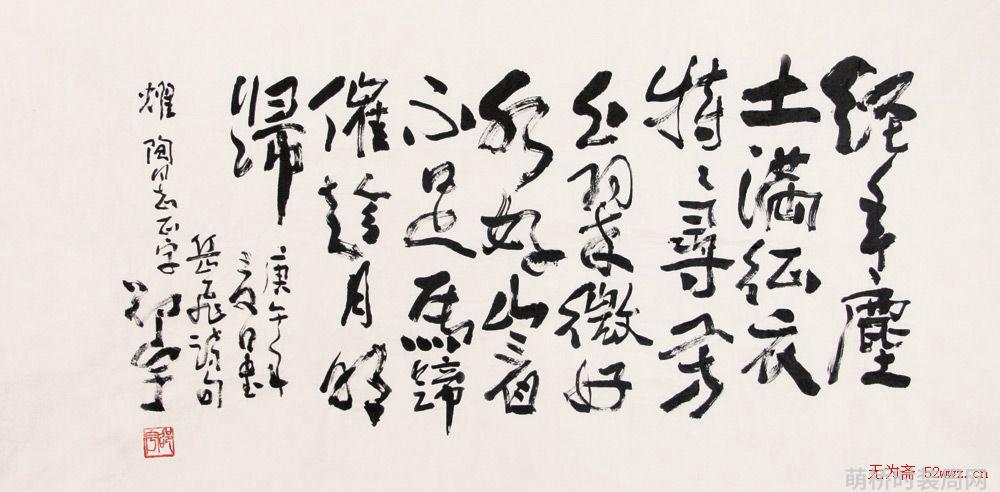 經年塵
土满征衣
特々尋芳
上翠微好
水好山看
不足馬蹄
催趁月明
歸
庚午年
夏日書
岳飛詩句
邵宇
耀陶同志正字
无为斋 52wwz.cn
萌桥时装周网